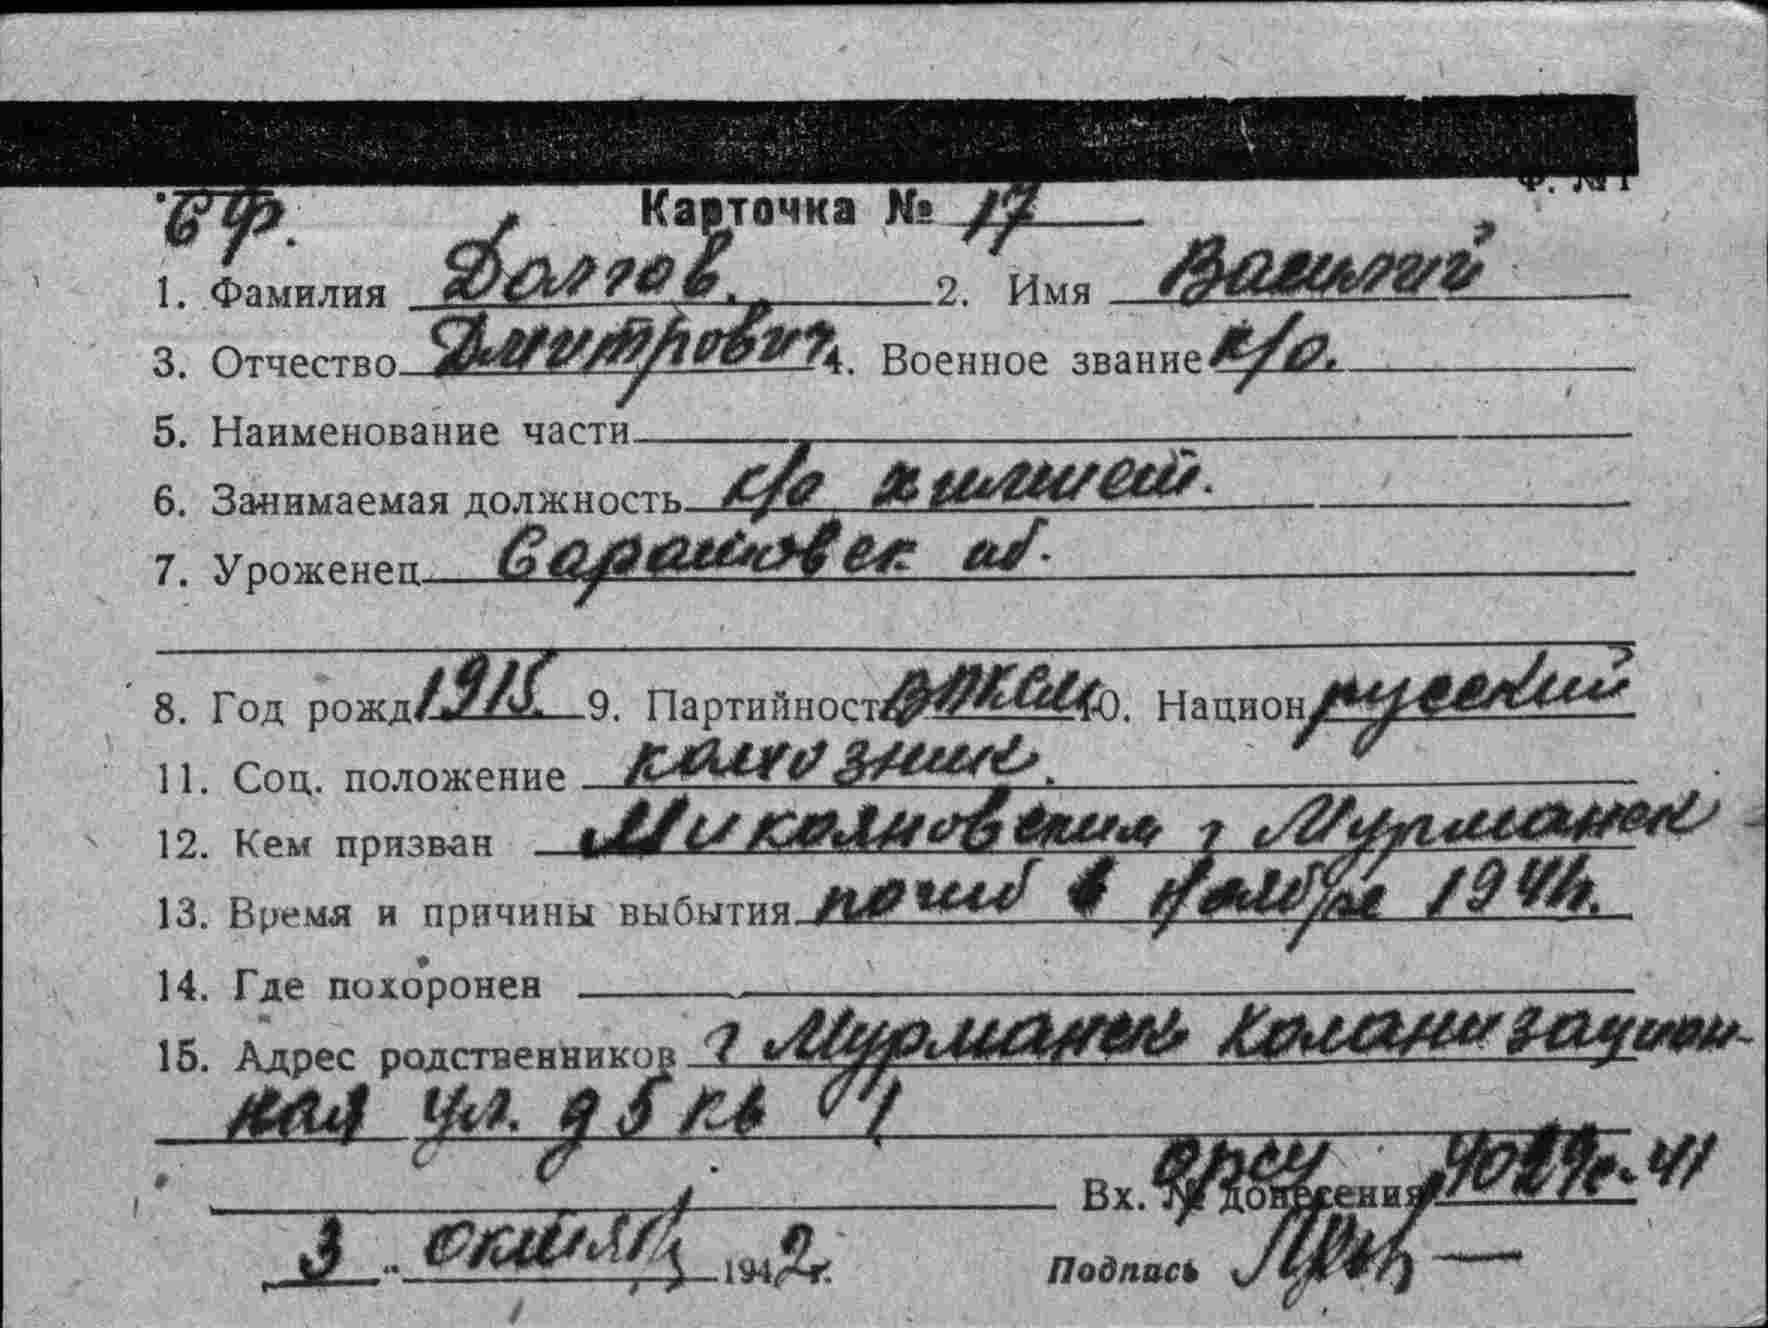 Ф. № 1
СФ.
Карточка № 17
1. Фамилия Долгов. 2. Имя Василий
3. Отчество Дмитрович 4. Военное звание к/о.
5. Наименование части
6. Занимаемая должность к/о хишшет.
7. Уроженец Саратовск об.
8. Год рожд 1915. 9. Партийност ВЛКСМ 10. Национ русский
11. Соц. положение колхозник.
12. Кем призван Микояновским г Мурманск
13. Время и причины выбытия погиб в Ноябре 1941г.
14. Где похоронен
15. Адрес родственников г Мурманск Коланизацион-
ная ул. д 5 кв 1
Вх. № донесения 4029с-41
3 октября 1942г.
Подпись